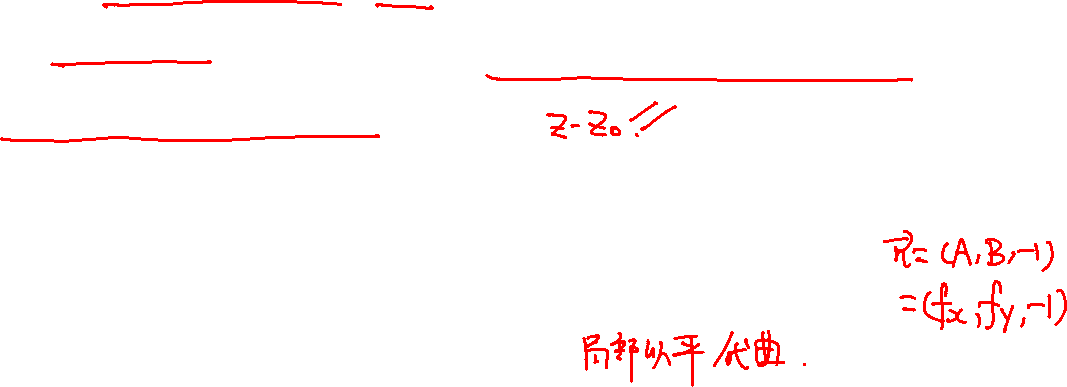 z-z₀
n⃗=(A,B,-1)
=(fx,fy,-1)
局部以平代曲.